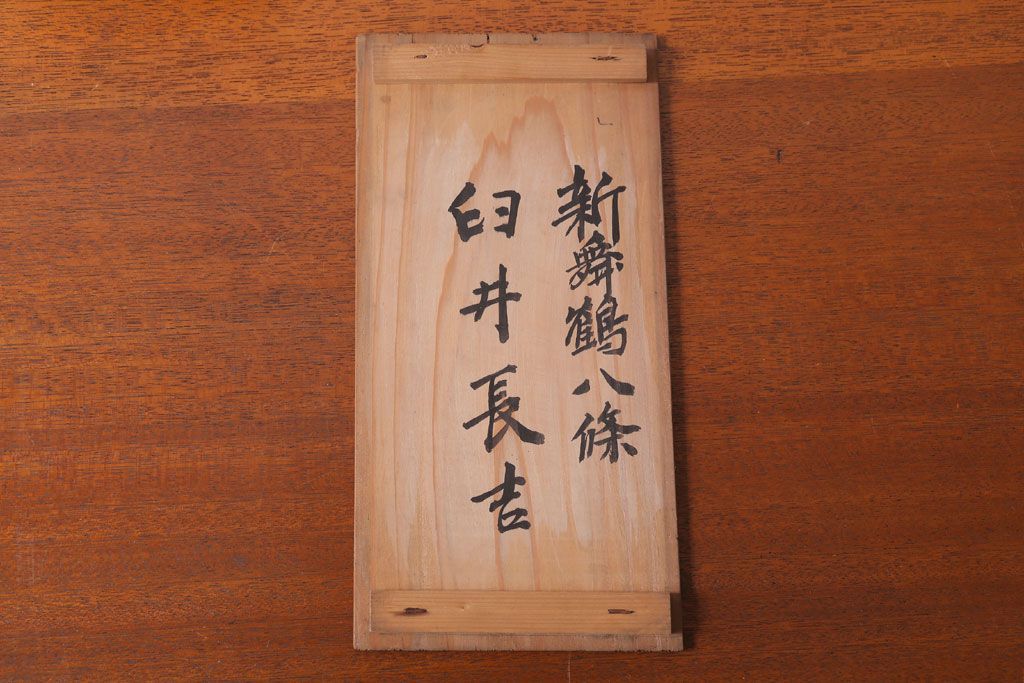 新舞鶴八條
臼井長吉